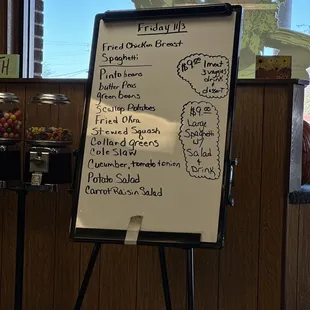 Friday 11/3
Fried Chicken Breast
Spaghetti
Pinto beans
butter Peas
Green beans
Scallop Potatoes
Fried Okra
Stewed Squash
Collard greens
Cole Slaw
Cucumber, tomato + onion
Potato Salad
Carrot Raisin Salad
$9.00
1 meat
3 veggies
drink +
dessert
$9.00
Large
Spaghetti
w/
Salad
+
Drink